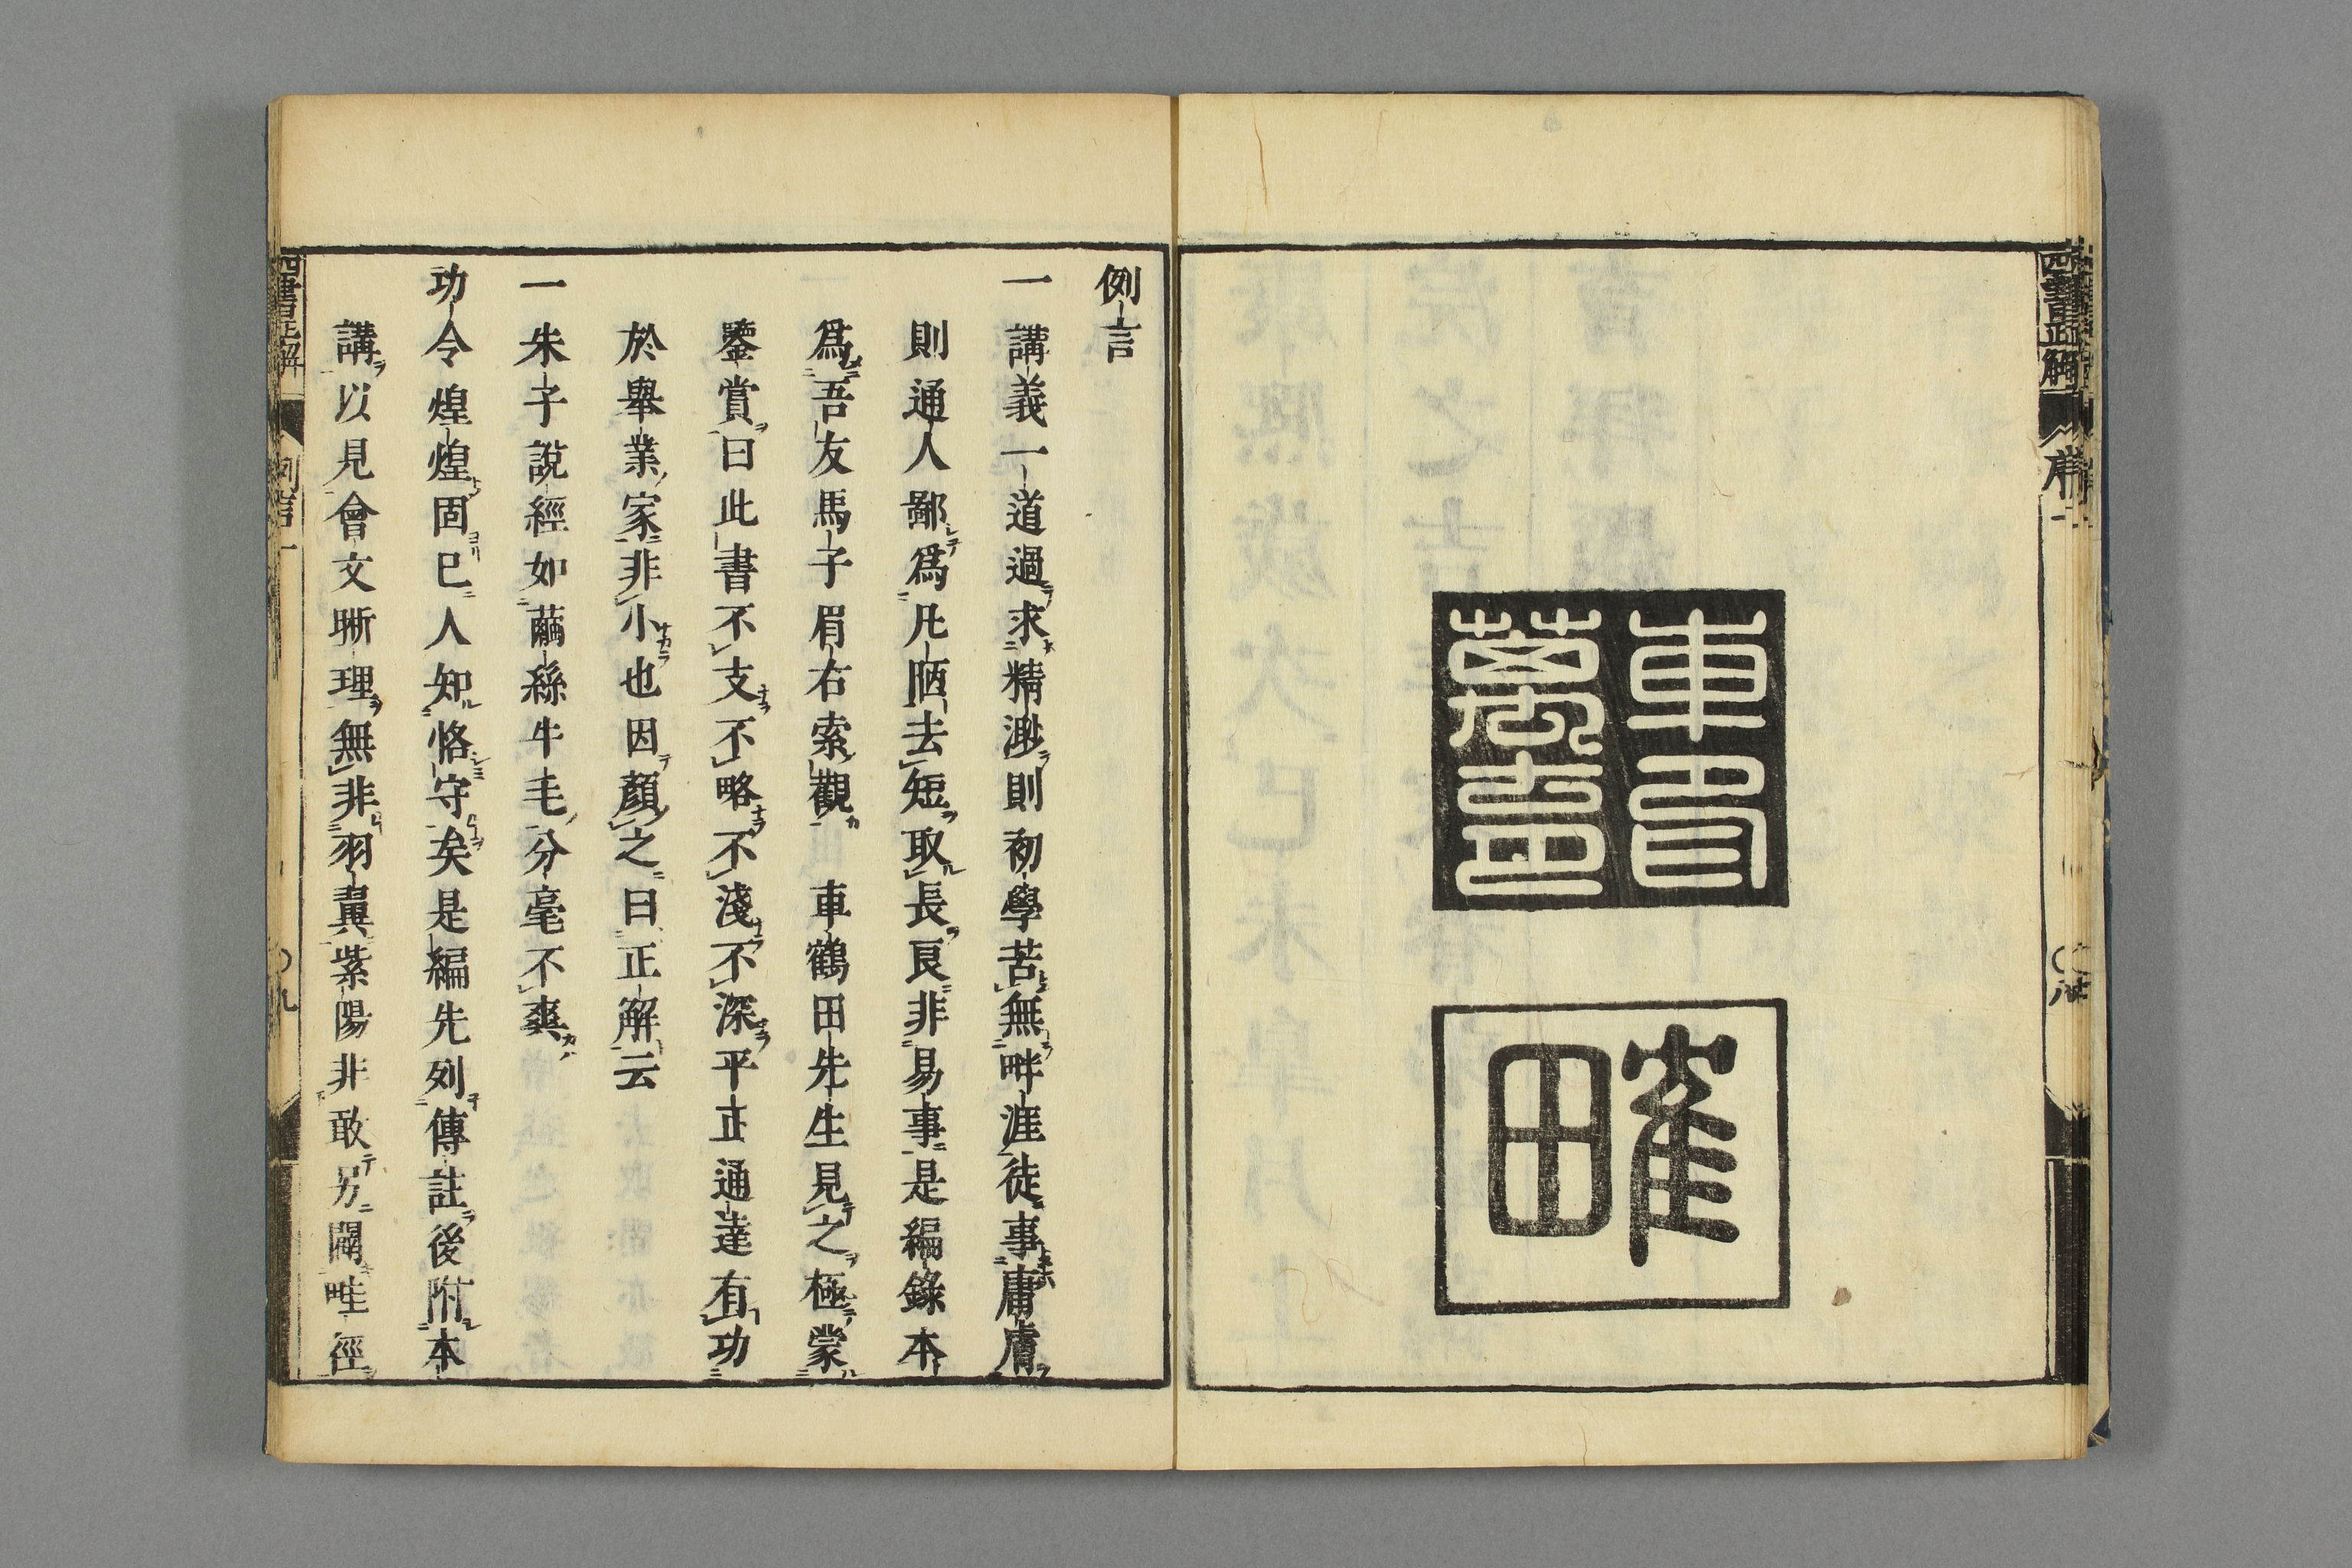 四書正解
序
〇八
車萬育
隺田
例言
一講義一道過求精渺則初學苦無畔涯徒事庸膚
則通人鄙爲凡陋去短取長良非易事是編錄本
爲吾友馬子眉右索觀 車鶴田先生見之極蒙
鑒賞曰此書不支不略不淺不深平正通達有功
於舉業家非小也因顏之曰正解云
一朱子說經如繭絲牛毛分毫不爽
功令煌煌固已人知恪守矣是編先列傳註後附本
講以見會文晰理無非羽翼紫陽非敢另闢畦徑
四書正解
例言一
〇九